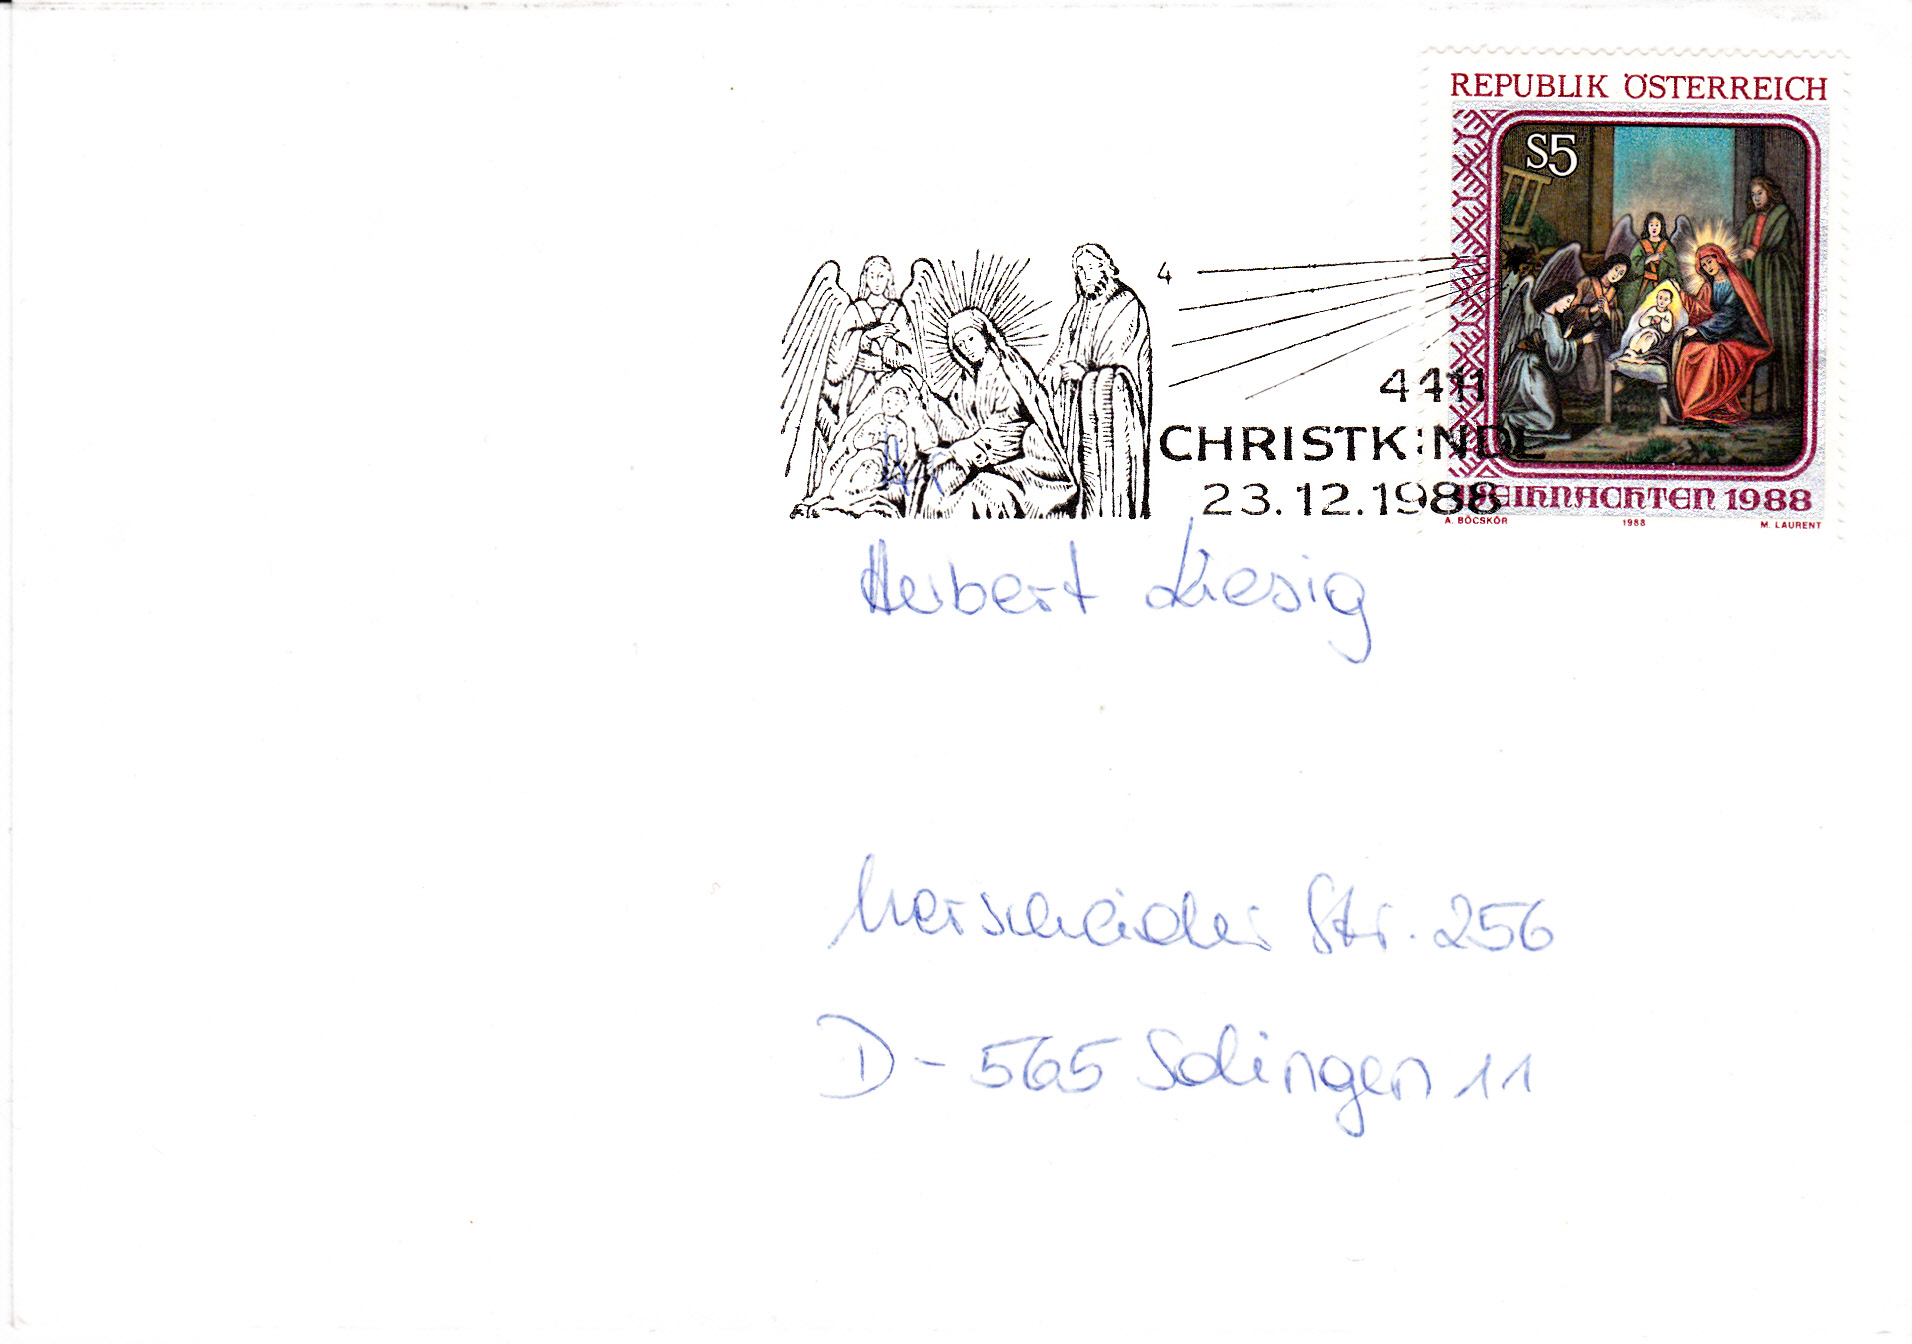 REPUBLIK ÖSTERREICH
S5
4
4411
CHRISTKINDL
23.12.1988
WEIHNACHTEN 1988
A. BÖCSKÖR 1988 M. LAURENT
An
Herbert Liesig
Merscheider Str. 256
D-565 Solingen 11